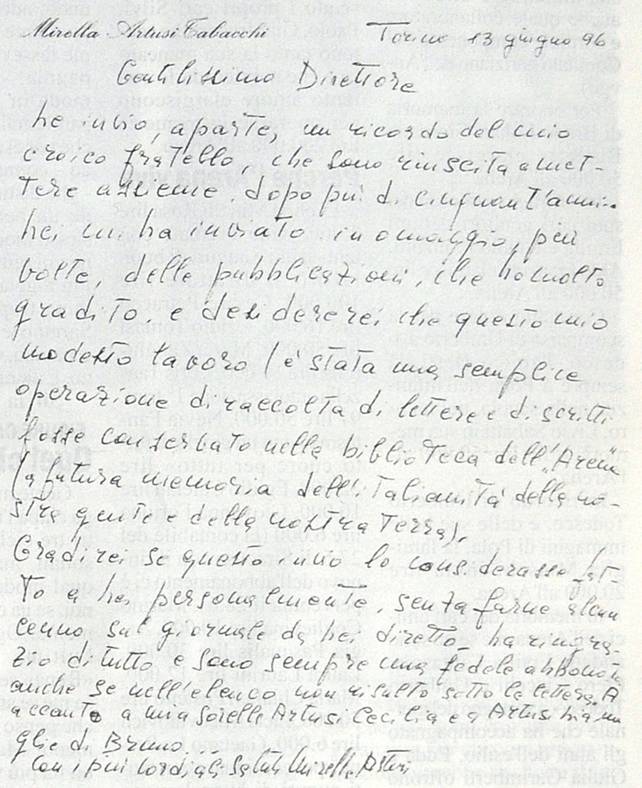 Mirella Artusi Tabacchi Torino 13 giugno, 96
Gentilissimo Direttore
Le invio, a parte, un ricordo del mio
eroico fratello, che sono riuscita a met-
tere assieme, dopo più di cinquant'anni.
Lei mi ha inviato in omaggio, più
volte, delle pubblicazioni, che ho molto
gradito, e desidererei che questo mio
modesto lavoro (è stata una semplice
operazione di raccolta di lettere e di scritti
fosse conservato nella biblioteca dell'"Arena"
(a futura memoria dell'italianità della no-
stra gente e della nostra terra).
Gradirei se questo invio lo considerasse fat-
to a Lei personalmente, senza farne alcun
cenno sul giornale da Lei diretto. La ringra-
zio di tutto e sono sempre una fedele abbonata
anche se nell'elenco non risulto sotto la lettera A
accanto a mia sorella Artusi Cecilia e a Artusi
glie di Bruno.
Con i più cordiali saluti Mirella Artusi